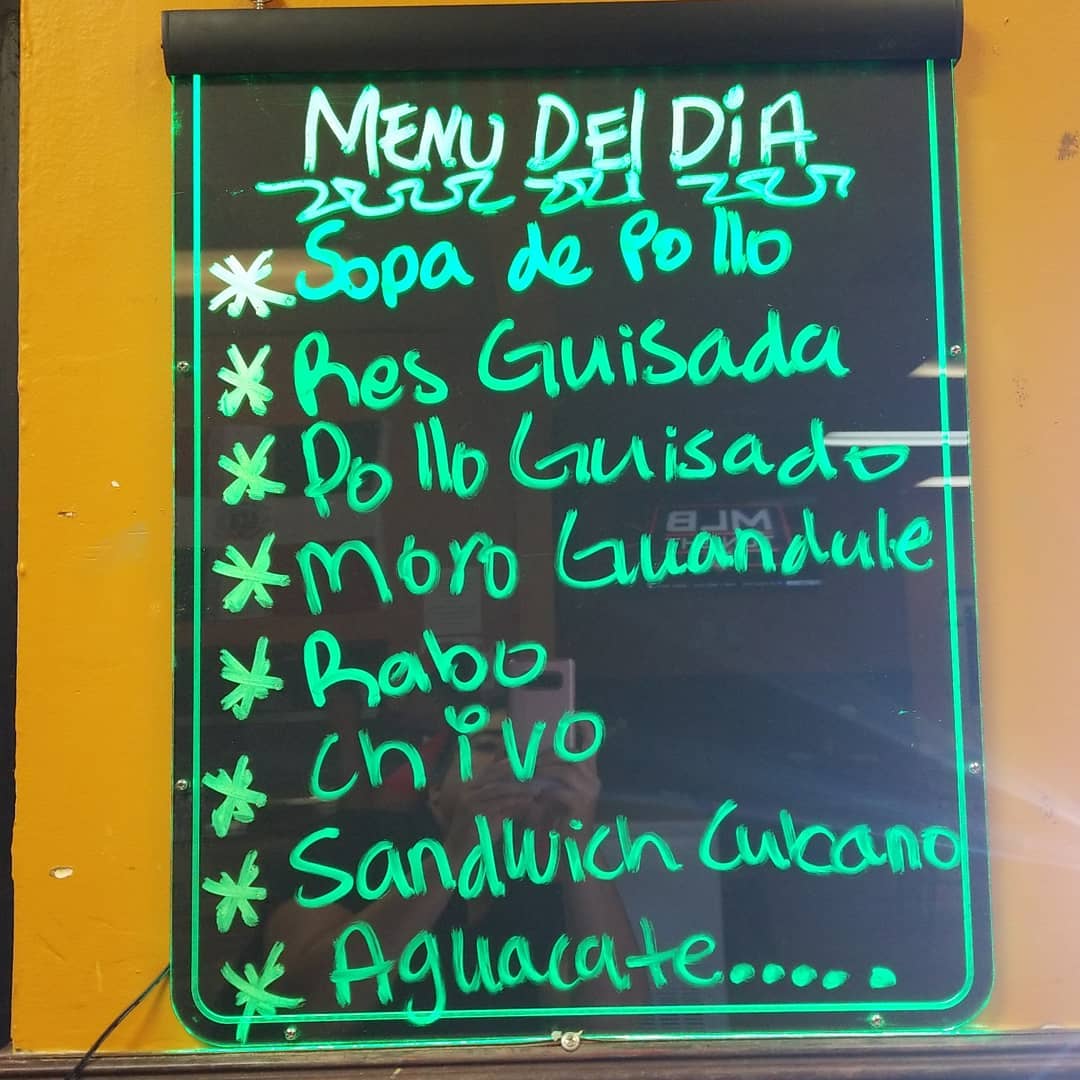 MENU DEl DiA
* Sopa de Pollo
* Res Guisada
* Pollo Guisado
* Moro Guandule
* Rabo
* Chivo
* Sandwich Cubano
* Aguacate.....
MLB